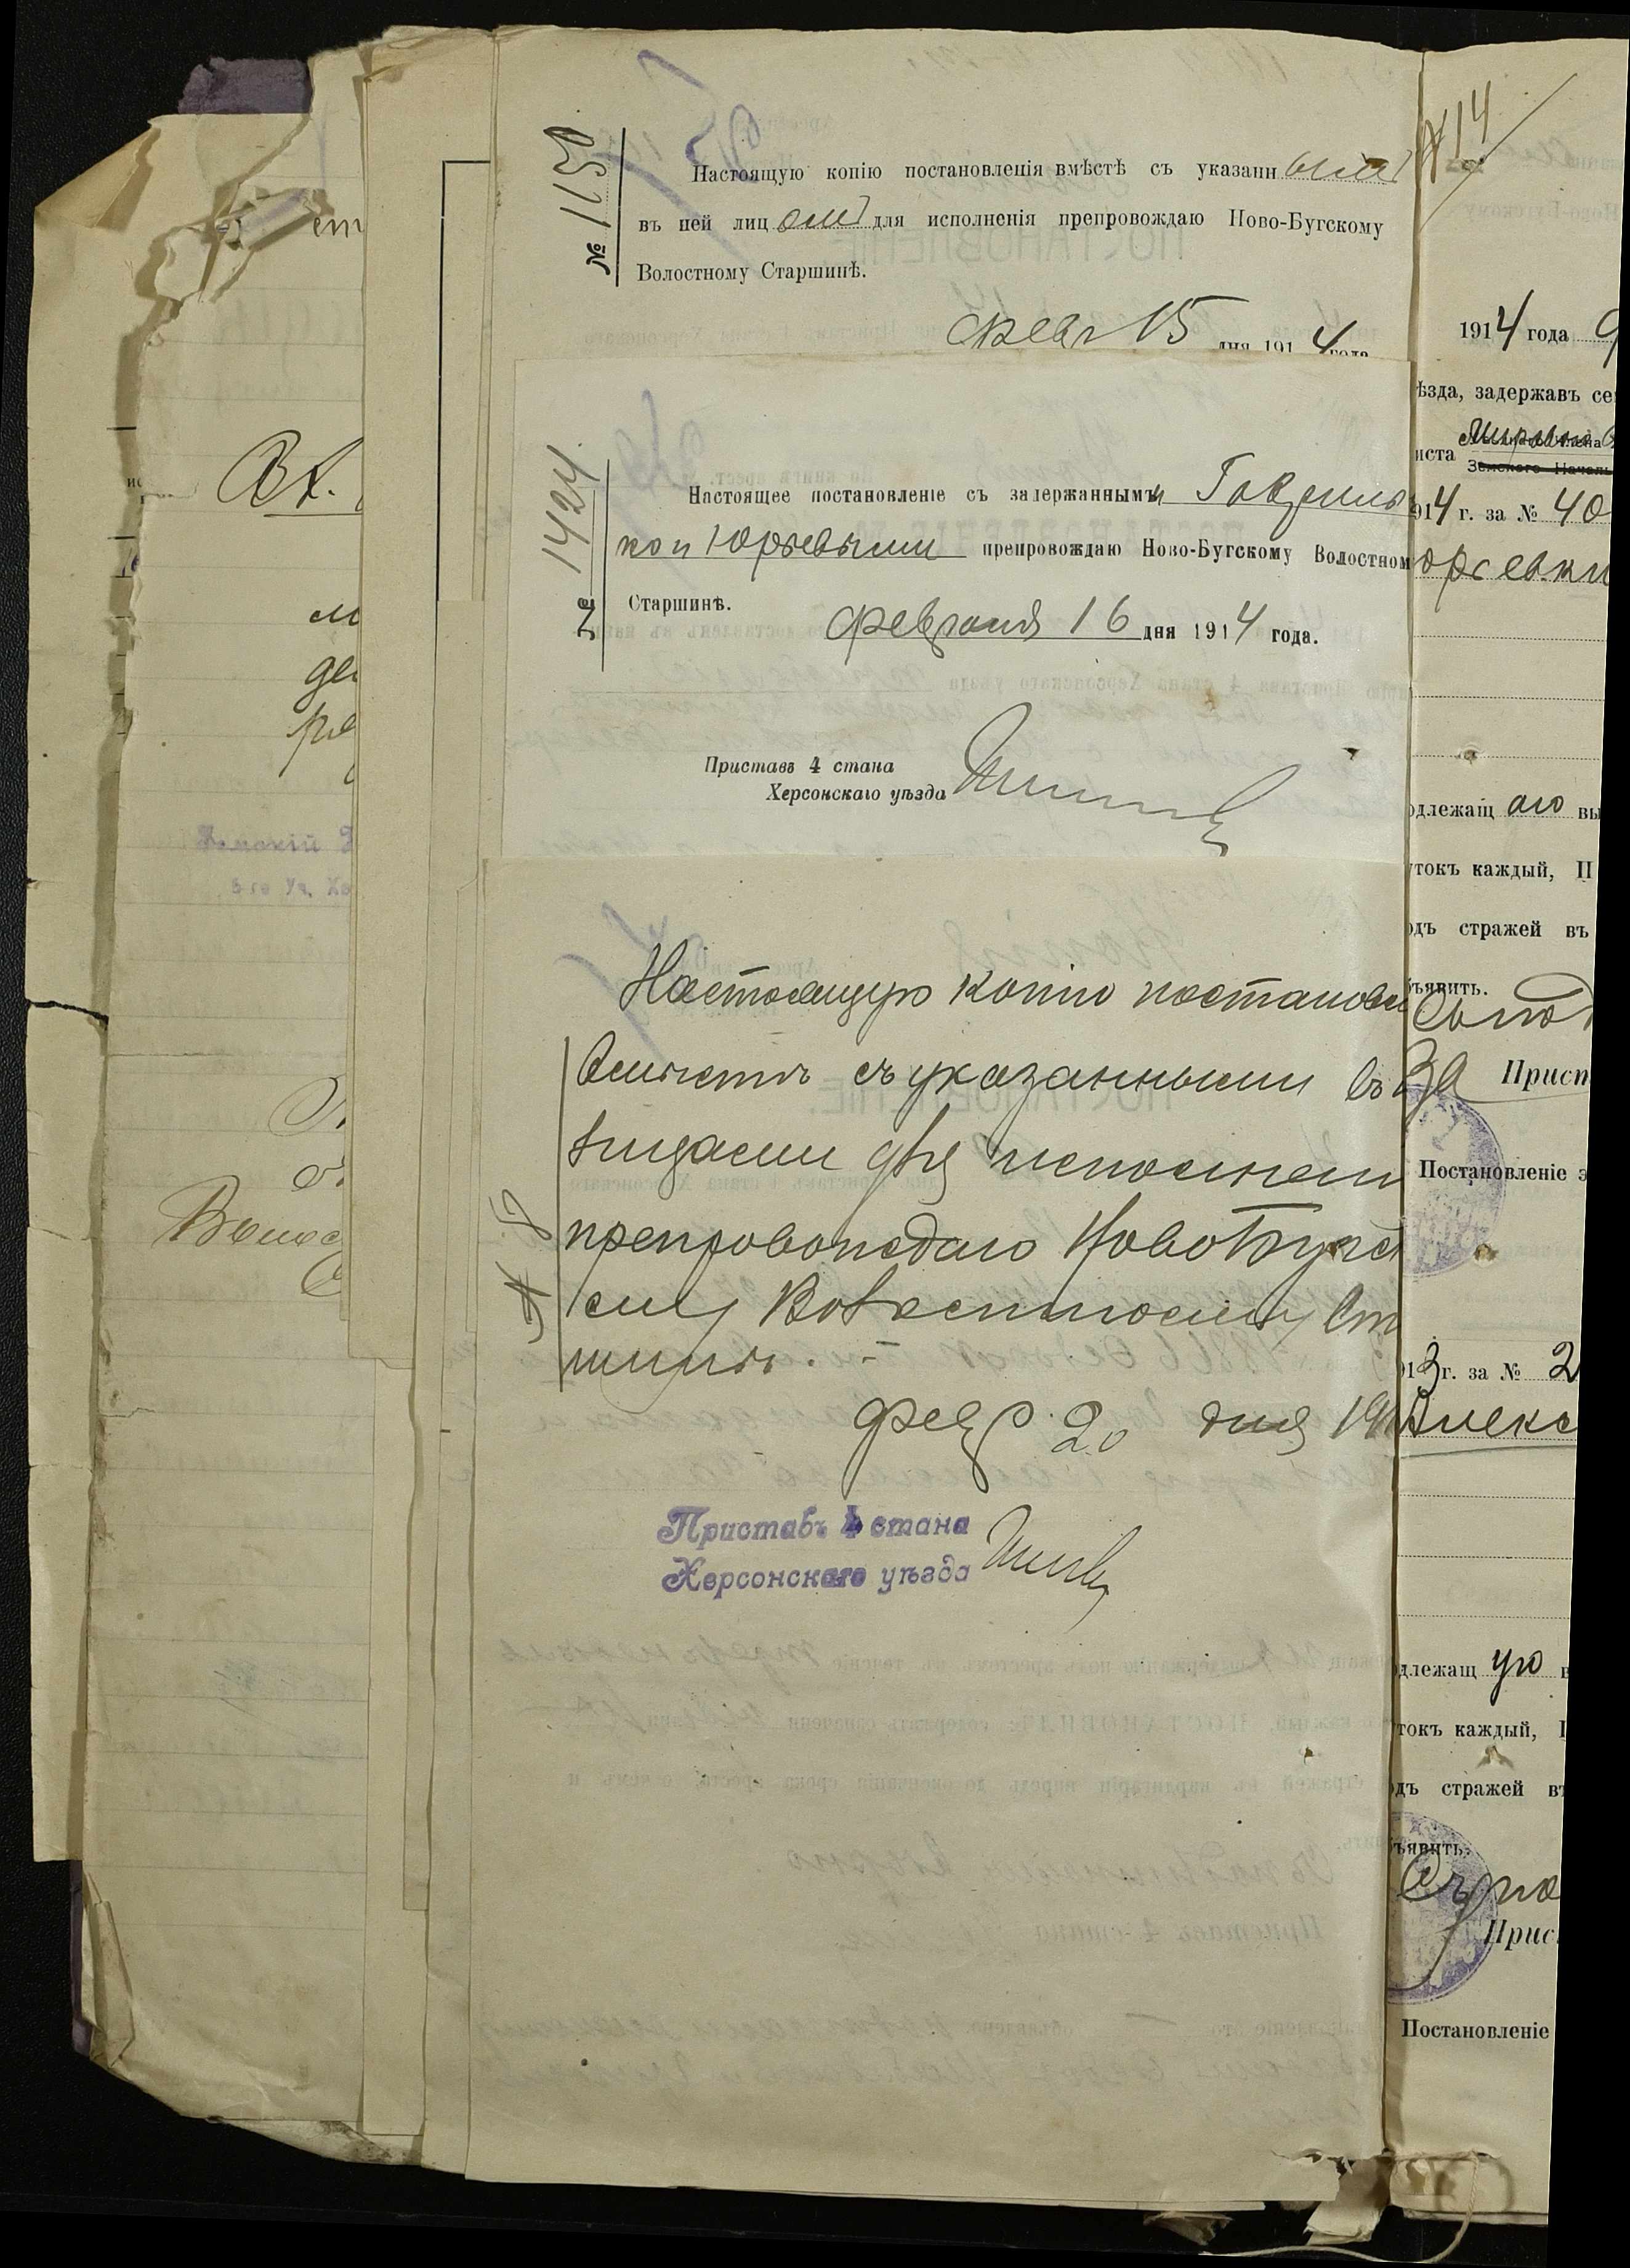 № 1159
Настоящую копію постановленія вмѣстѣ съ указанн ымъ
въ ней лиц омъ для исполненія препровождаю Ново-Бугскому
Волостному Старшинѣ.
февр 15 дня 1914 года
№ 1424
Настоящее постановленіе съ задержаннымъ
Юрьевыми препровождаю Ново-Бугскому Волостном
Старшинѣ.
февраля 16 дня 1914 года.
Приставъ 4 стана
Херсонскаго уѣзда
Настоящую копію постановл
вмѣстѣ съ указанными въ
лицами для исполнен
препровождаю Ново Бугс
кому Волостному Ст
шинѣ. -
февр. 20 дня 191
Приставъ 4 стана
Херсонскаго уѣзда
№14
1914 года
ѣзда, задержавъ се
иста
Земскаго Началь
914 г. за № 40
одлежащ аго вы
утокъ каждый, П
одъ стражей въ
бъявить.
За Прист
Постановленіе э
913 г. за № 2
Алекс
длежащ ую в
токъ каждый, П
дъ стражей въ
бъявить.
Прис
Постановленіе
ст
Вх.
м
де
ра
Земскій
5-го Уч. Хе
Волос